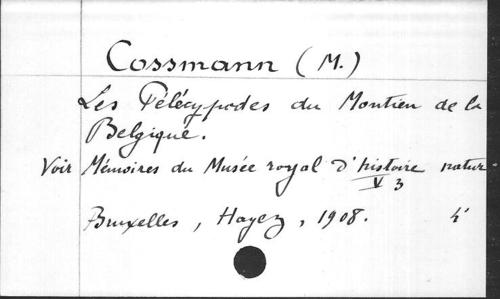 Cossmann (M.)
Les Pélécypodes du Montien de la
Belgique.
Voir Mémoires du Musée royal d'histoire natur
V 3
Bruxelles, Hayez, 1908. 4°